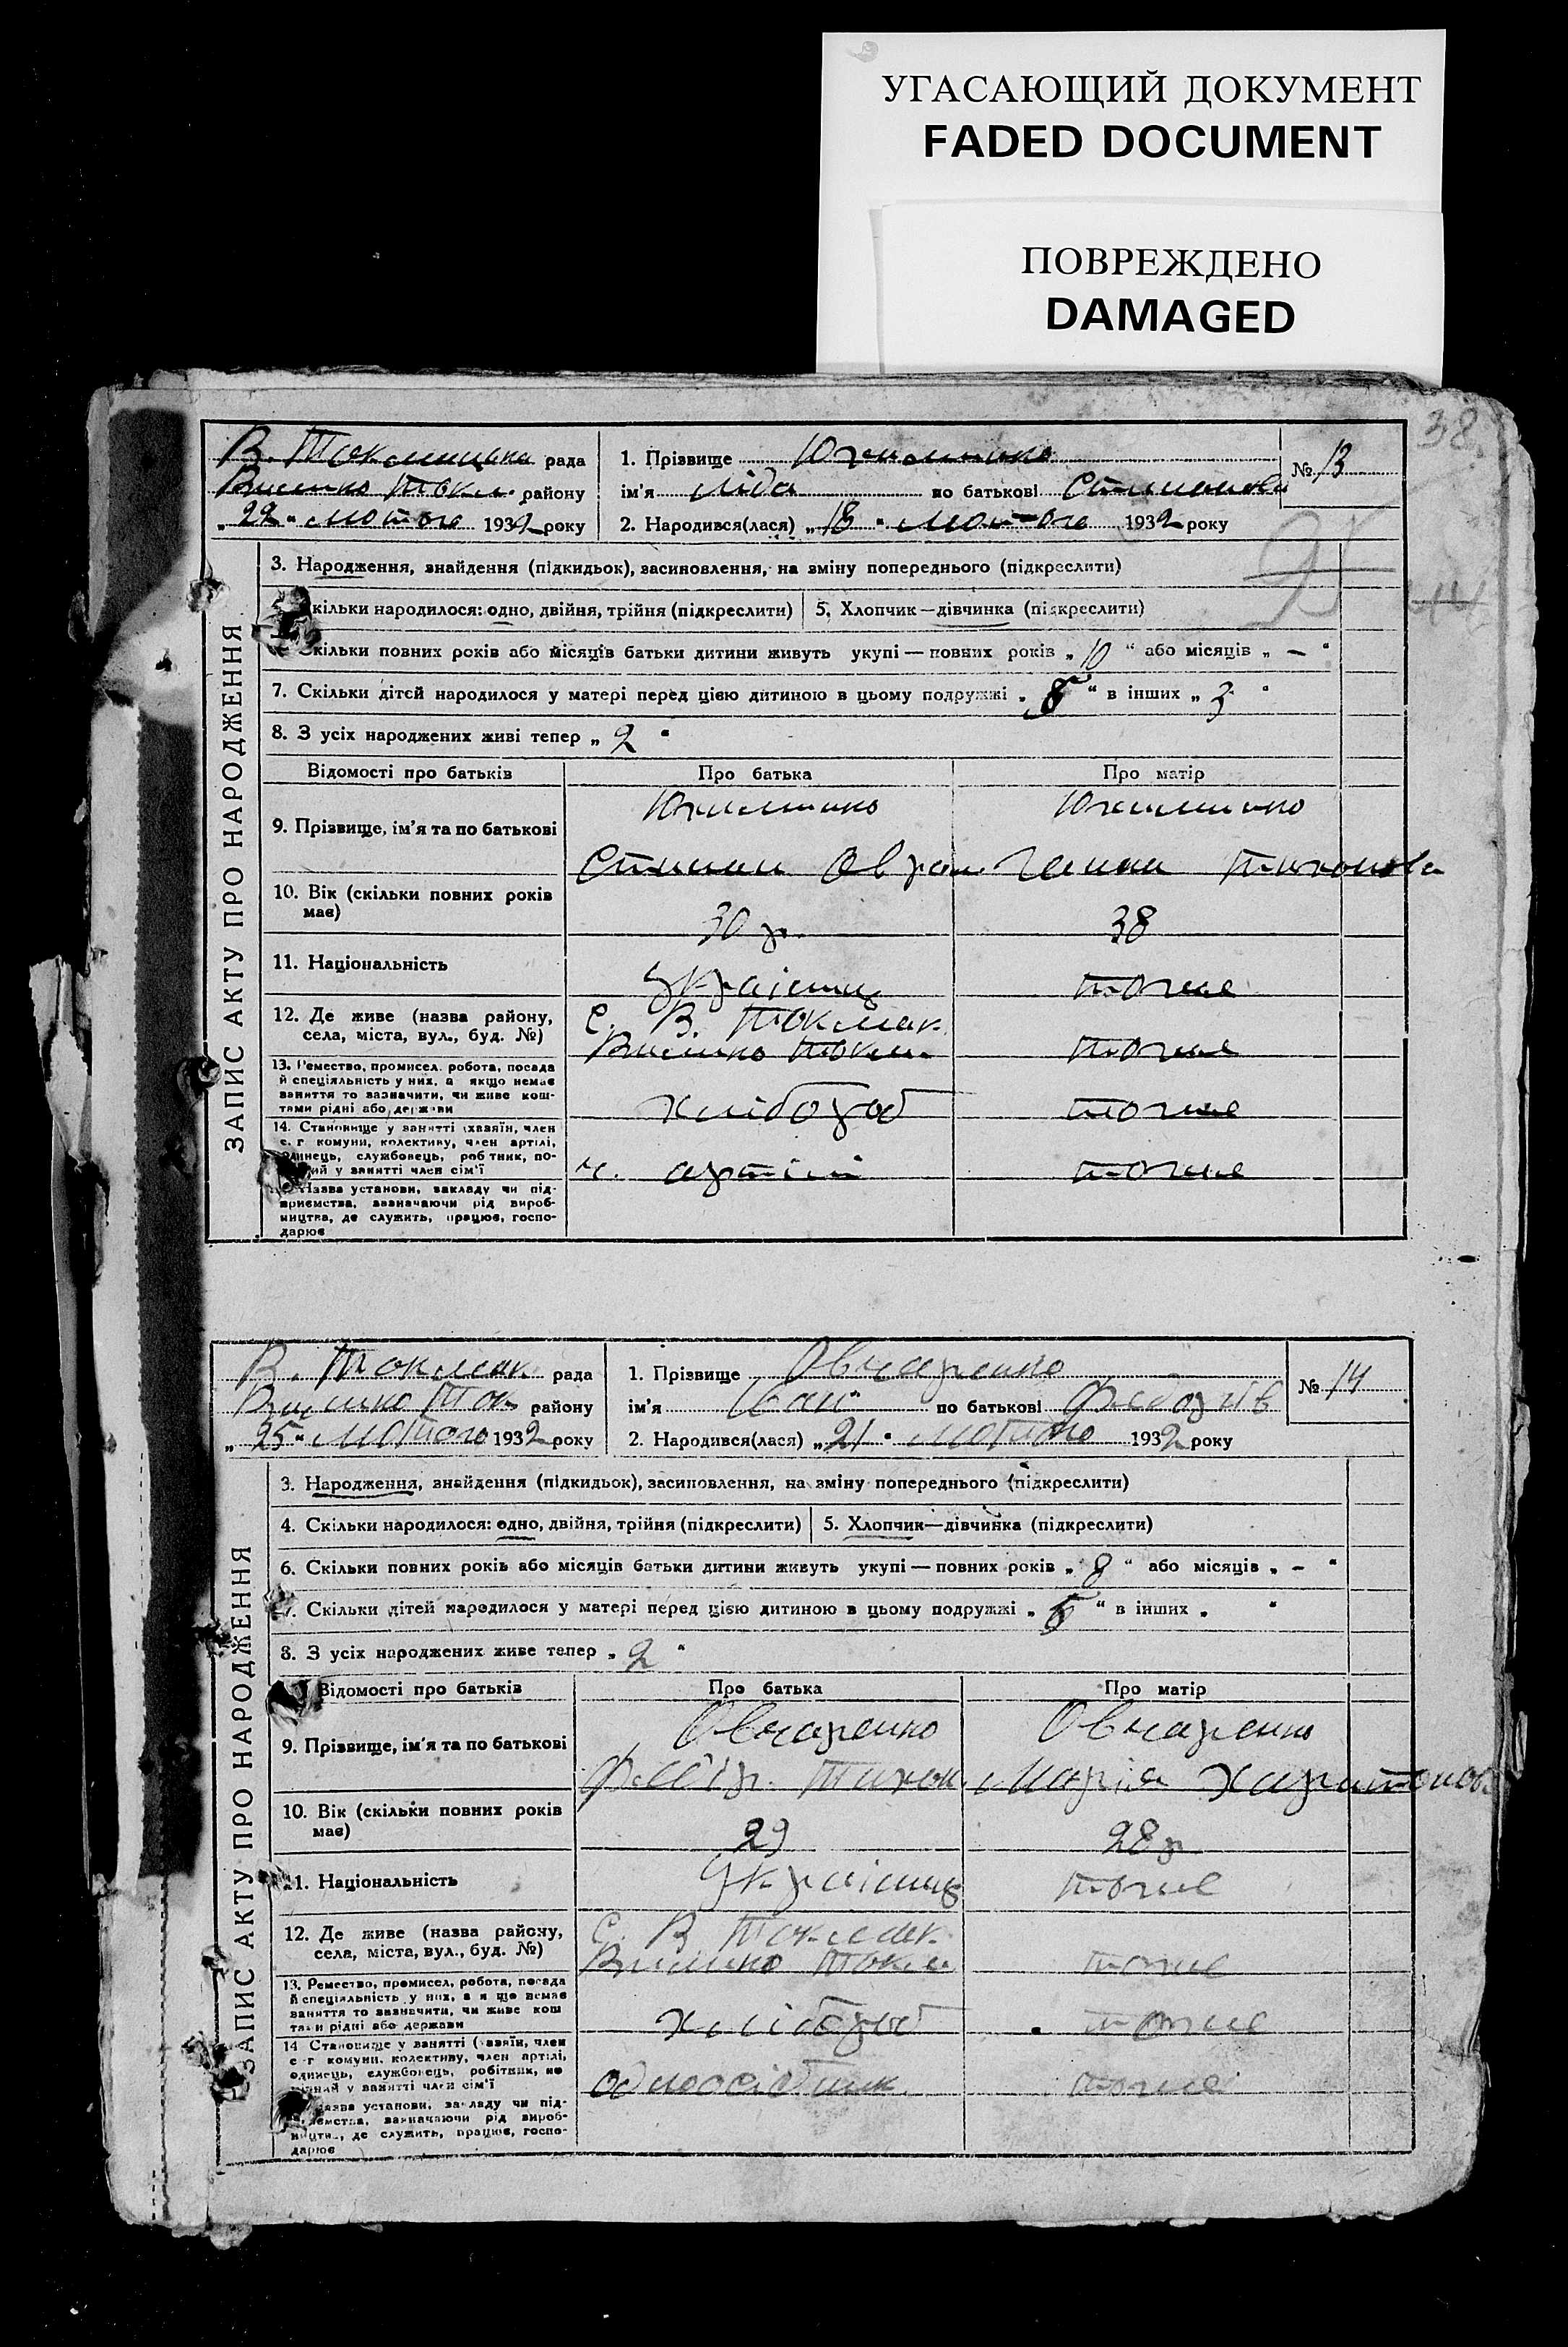 УГАСАЮЩИЙ ДОКУМЕНТ
FADED DOCUMENT
ПОВРЕЖДЕНО
DAMAGED
38
В. Токмацька рада
району
„22“ лютого 1932 року
1. Прізвище
ім'я Ліда по батькові Степанова
2. Народився(лася) „18“ лютого 1932 року
№ 13
ЗАПИС АКТУ ПРО НАРОДЖЕННЯ
3. Народження, знайдення (підкидьок), засиновлення, на зміну попереднього (підкреслити)
кільки народилося: одно, двійня, трійня (підкреслити) 5. Хлопчик—дівчинка (підкреслити)
кільки повних років або місяців батьки дитини живуть укупі — повних років „10“ або місяців „–“
7. Скільки дітей народилося у матері перед цією дитиною в цьому подружжі „ “ в інших „3“
8. З усіх народжених живі тепер „2“
Відомості про батьків Про батька Про матір
9. Прізвище, ім'я та по батькові
Степан Оврам Ганна Тихонова
10. Вік (скільки повних років має) 30 р. 38
11. Національність Українец тоже
12. Де живе (назва району, села, міста, вул., буд. №) с. В. Токмак
тоже
13. Ремество, промисел, робота, посада
й спеціяльність у них, а якщо немає
заняття то зазначити, чи живе кош-
тами рідні або держави
хлібороб тоже
14. Становище у занятті (хазяїн, член
с.-г комуни, колективу, член артілі,
одинець, службовець, робітник, по-
ний у занятті член сім'ї
ч. артілі тоже
Назва установи, закладу чи під-
приємства, зазначаючи рід вироб-
ництва, де служить, працює, госпо-
дарює
В. Токмак рада
району
„25“ лютого 1932 року
1. Прізвище Овчаренко
ім'я Іван по батькові
2. Народився(лася) „21“ лютого 1932 року
№ 14
ЗАПИС АКТУ ПРО НАРОДЖЕННЯ
3. Народження, знайдення (підкидьок), засиновлення, на зміну попереднього (підкреслити)
4. Скільки народилося: одно, двійня, трійня (підкреслити) 5. Хлопчик—дівчинка (підкреслити)
6. Скільки повних років або місяців батьки дитини живуть укупі — повних років „8“ або місяців „–“
Скільки дітей народилося у матері перед цією дитиною в цьому подружжі „ “ в інших „ “
8. З усіх народжених живе тепер „2“
Відомості про батьків Про батька Про матір
9. Прізвище, ім'я та по батькові Овчаренко Овчаренко
Тихон Марія Харитонова
10. Вік (скільки повних років має) 29 28 р
11. Національність Українец тоже
12. Де живе (назва району, села, міста, вул., буд. №) с. В Токмак
тоже
13. Ремество, промисел, робота, посада
й спеціяльність у них, а якщо немає
заняття то зазначити, чи живе кош
тами рідні або держави
хлібороб тоже
14 Становище у занятті (хазяїн, член
с-г комуни, колективу, член артілі,
одинець, службовець, робітник, по
ічний у занятті член сім'ї
односібник тоже
Назва установи, закладу чи під-
приємства, зазначаючи рід вироб-
ництва, де служить, працює, госпо-
дарює